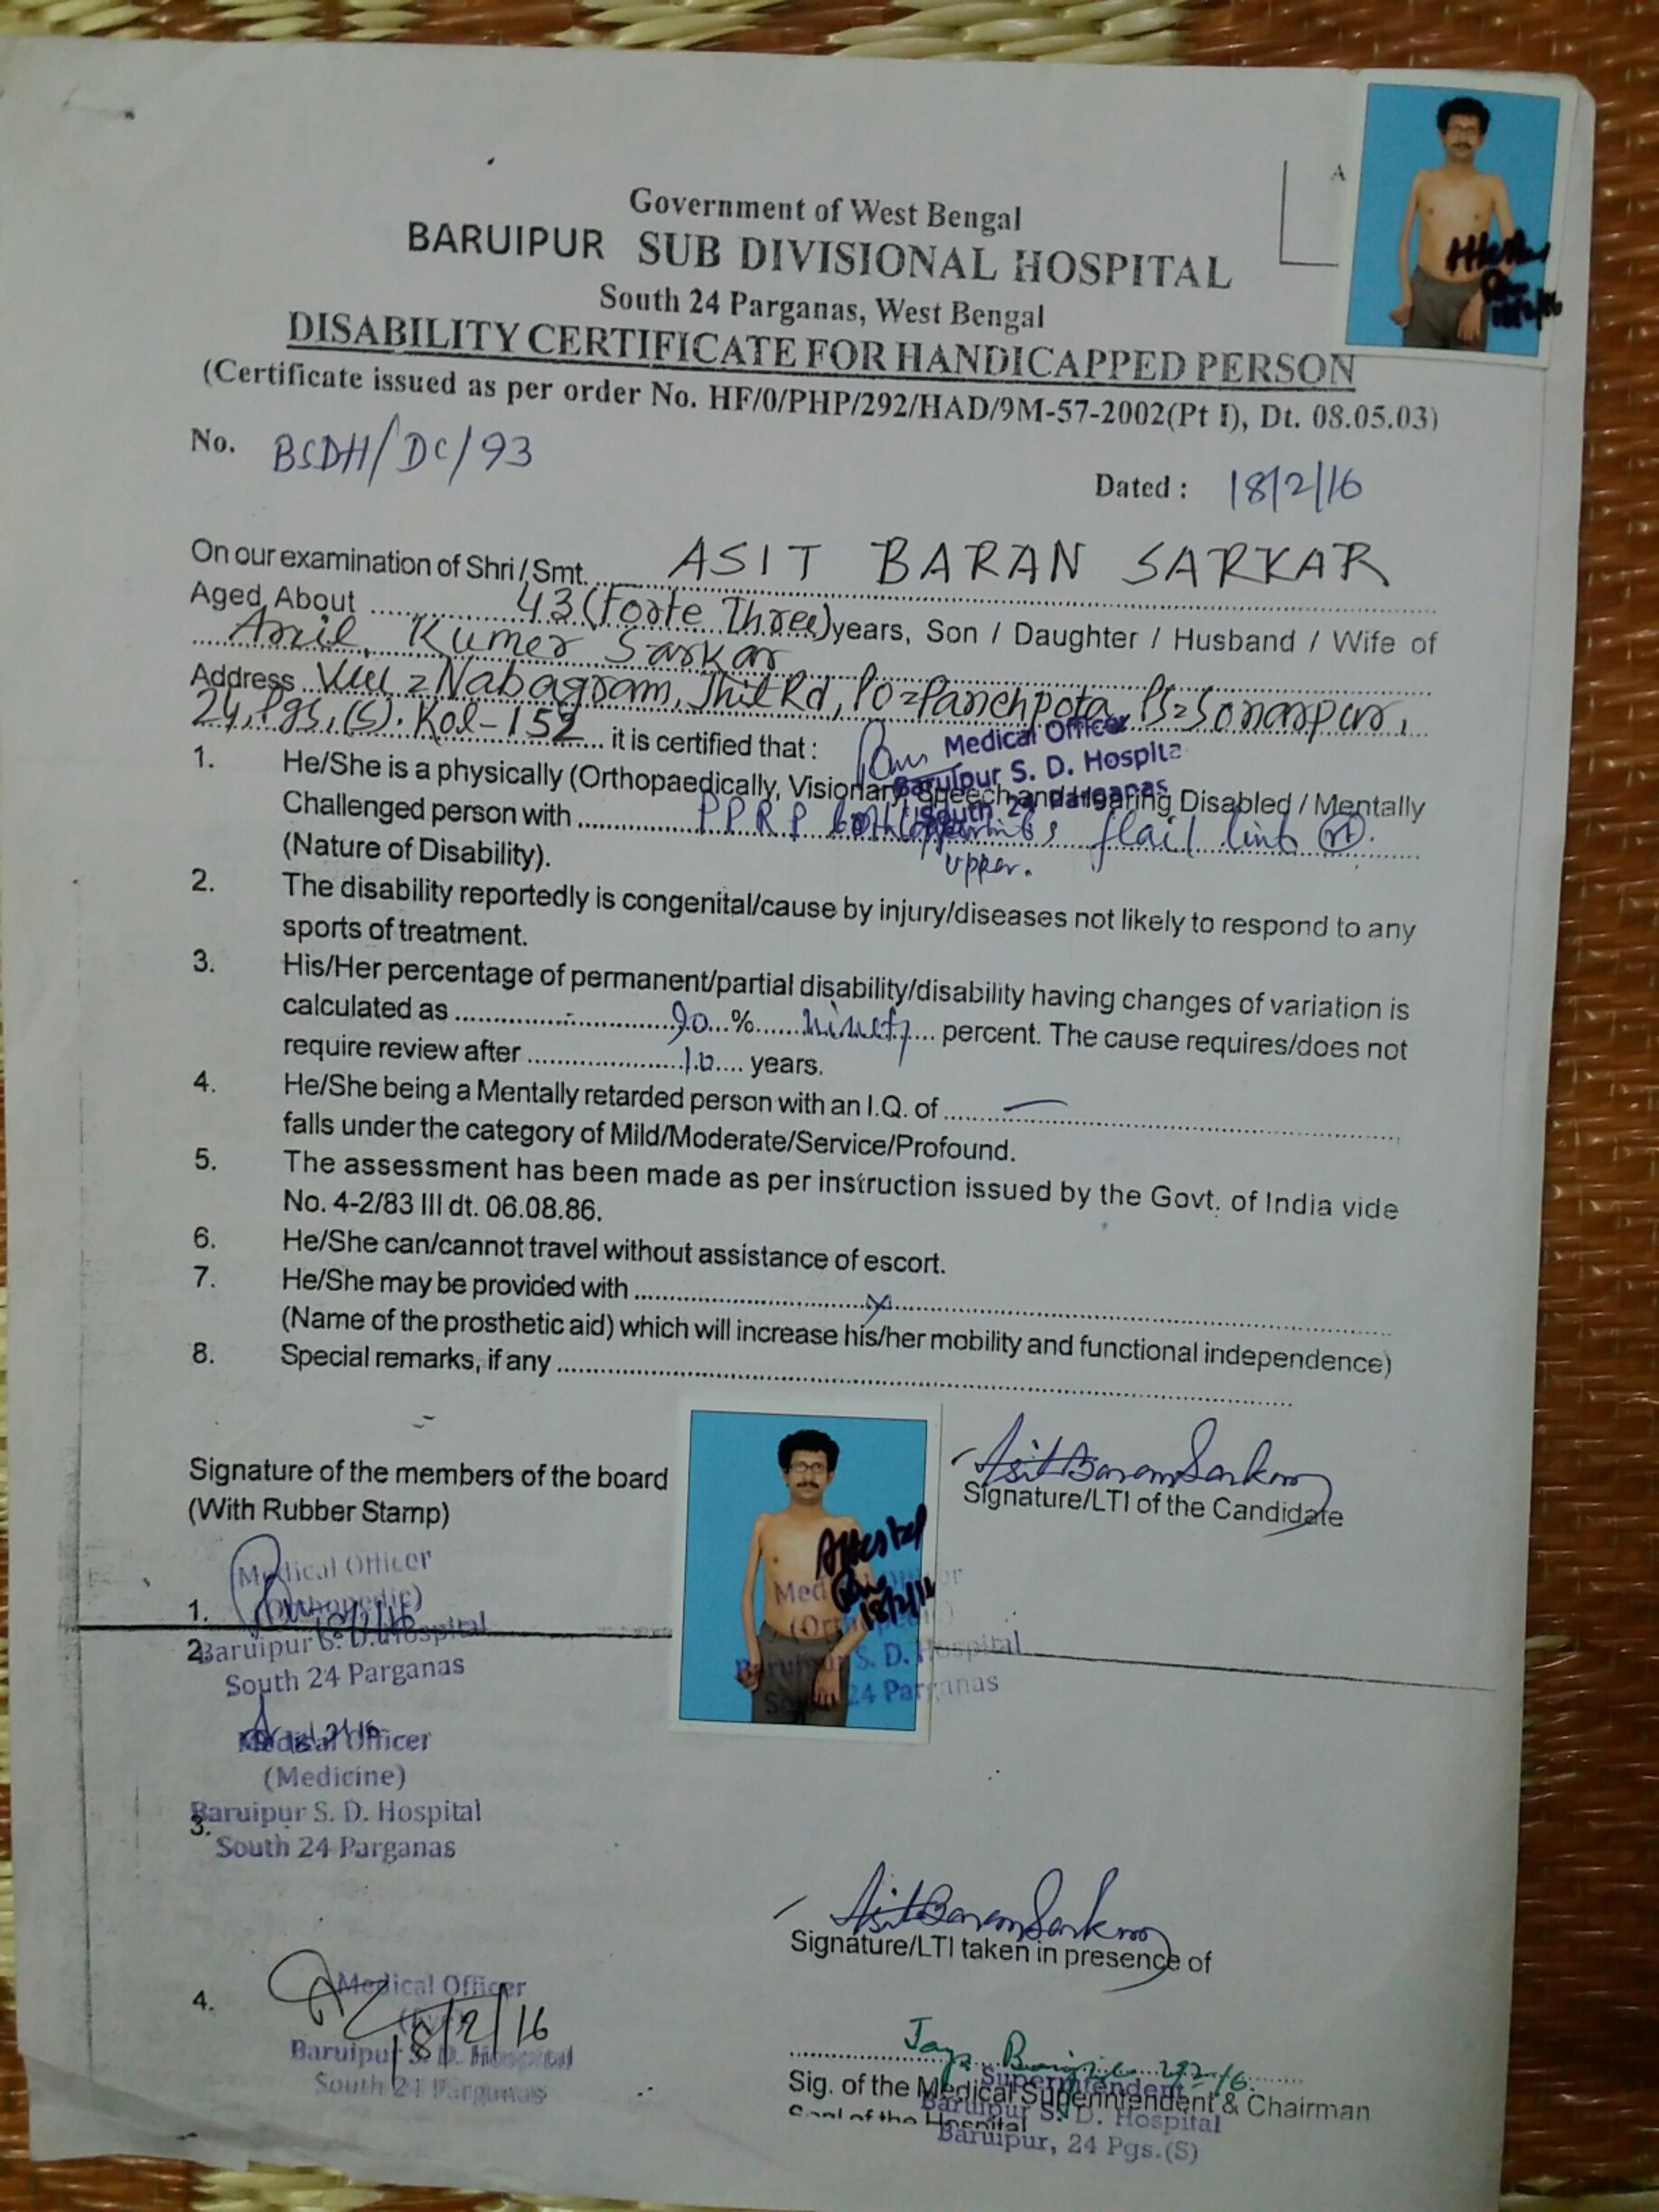 A
Government of West Bengal
BARUIPUR SUB DIVISIONAL HOSPITAL
South 24 Parganas, West Bengal
DISABILITY CERTIFICATE FOR HANDICAPPED PERSON
(Certificate issued as per order No. HF/0/PHP/292/HAD/9M-57-2002(Pt I), Dt. 08.05.03)
No. BSDH/DC/93
Dated : 18/2/16
On our examination of Shri / Smt. ASIT BARAN SARKAR
Aged About 43 (Forte Three) years, Son / Daughter / Husband / Wife of
Kumer Sarkar
Address Nabagram, Jhil Rd, PO=Panchpota, PS=Sonarpur,
24, Pgs, (S). Kol-152 it is certified that :
Medical Officer
Baruipur S. D. Hospita
South 24 Parganas
1. He/She is a physically (Orthopaedically, Visionary, Speech and Hearing Disabled / Mentally
Challenged person with PPRP flail limb rt.
upper.
(Nature of Disability).
2. The disability reportedly is congenital/cause by injury/diseases not likely to respond to any
sports of treatment.
3. His/Her percentage of permanent/partial disability/disability having changes of variation is
calculated as 90 % ninety percent. The cause requires/does not
require review after 10 years.
4. He/She being a Mentally retarded person with an I.Q. of —
falls under the category of Mild/Moderate/Service/Profound.
5. The assessment has been made as per instruction issued by the Govt. of India vide
No. 4-2/83 III dt. 06.08.86.
6. He/She can/cannot travel without assistance of escort.
7. He/She may be provided with x
(Name of the prosthetic aid) which will increase his/her mobility and functional independence)
8. Special remarks, if any
Signature of the members of the board
(With Rubber Stamp)
Asit Baran Sarkar
Signature/LTI of the Candidate
Attested
18/2/16
Medical Officer
(Orthopedic)
1.
2.
Baruipur S. D. Hospital
South 24 Parganas
Medical Officer
(Medicine)
Baruipur S. D. Hospital
3.
South 24 Parganas
Asit Baran Sarkar
Signature/LTI taken in presence of
4.
Medical Officer
(Eye)
18/2/16
Baruipur S. D. Hospital
South 24 Parganas
Sig. of the Medical Superintendent & Chairman
Seal of the Hospital
Superintendent
Baruipur S. D. Hospital
Baruipur, 24 Pgs.(S)